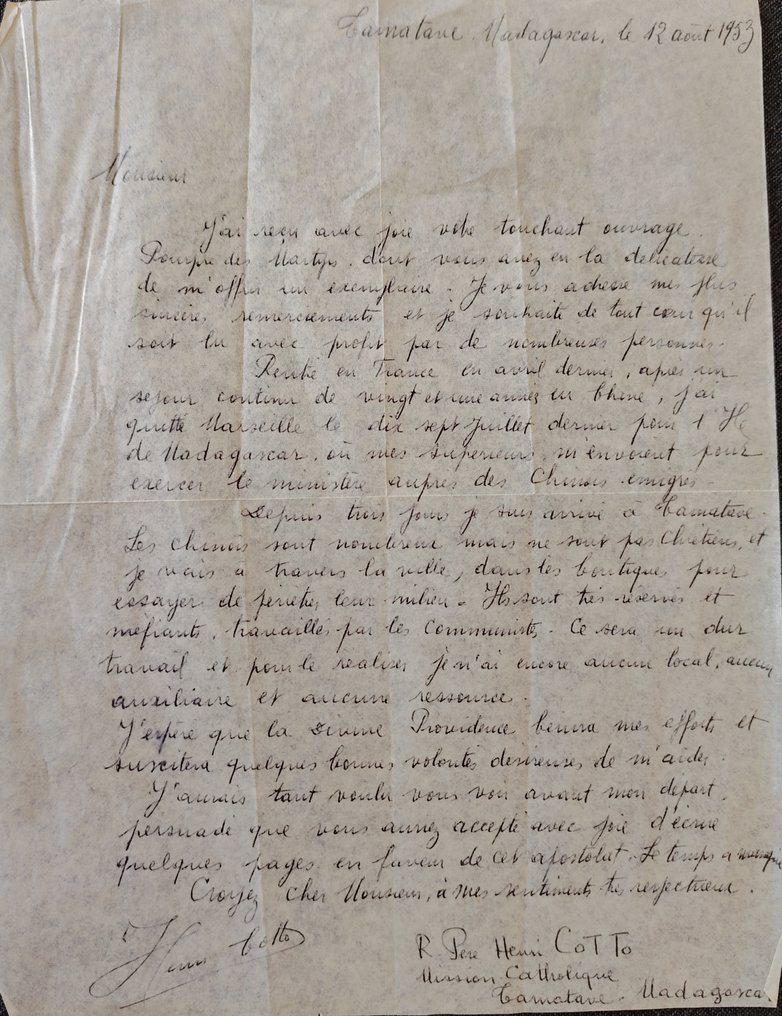 Tamatave. Madagascar, le 12 août 1953
Monsieur
J'ai reçu avec joie votre touchant ouvrage.
des Martyrs, dont vous avez eu la délicatesse
de m'offrir un exemplaire. Je vous adresse mes plus
sincères remerciements et je souhaite de tout cœur qu'il
soit lu avec profit par de nombreuses personnes.
Rentré en France en avril dernier, après un
séjour continu de vingt et une années en Chine, j'ai
quitté Marseille le dix sept Juillet dernier pour l'Ile
de Madagascar, où mes supérieurs m'envoient pour
exercer le ministère auprès des Chinois émigrés.
Depuis trois jours je suis arrivé à Tamatave.
Les chinois sont nombreux mais ne sont pas Chrétiens, et
je vais à travers la ville, dans les boutiques pour
essayer de pénétrer leur milieu. Ils sont très réservés et
méfiants, travaillés par les Communistes. Ce sera un dur
travail et pour le réaliser je n'ai encore aucun local, aucun
auxiliaire et aucune ressource.
J'espère que la Divine Providence bénira mes efforts et
suscitera quelques bonnes volontés désireuses de m'aider.
J'aurais tant voulu vous voir avant mon départ,
persuadé que vous auriez accepté avec joie d'écrire
quelques pages en faveur de cet apostolat. Le temps a manqué
Croyez cher Monsieur, à mes sentiments très respectueux.
Henri Cotto
R. Père Henri COTTO
Mission Catholique
Tamatave. Madagascar